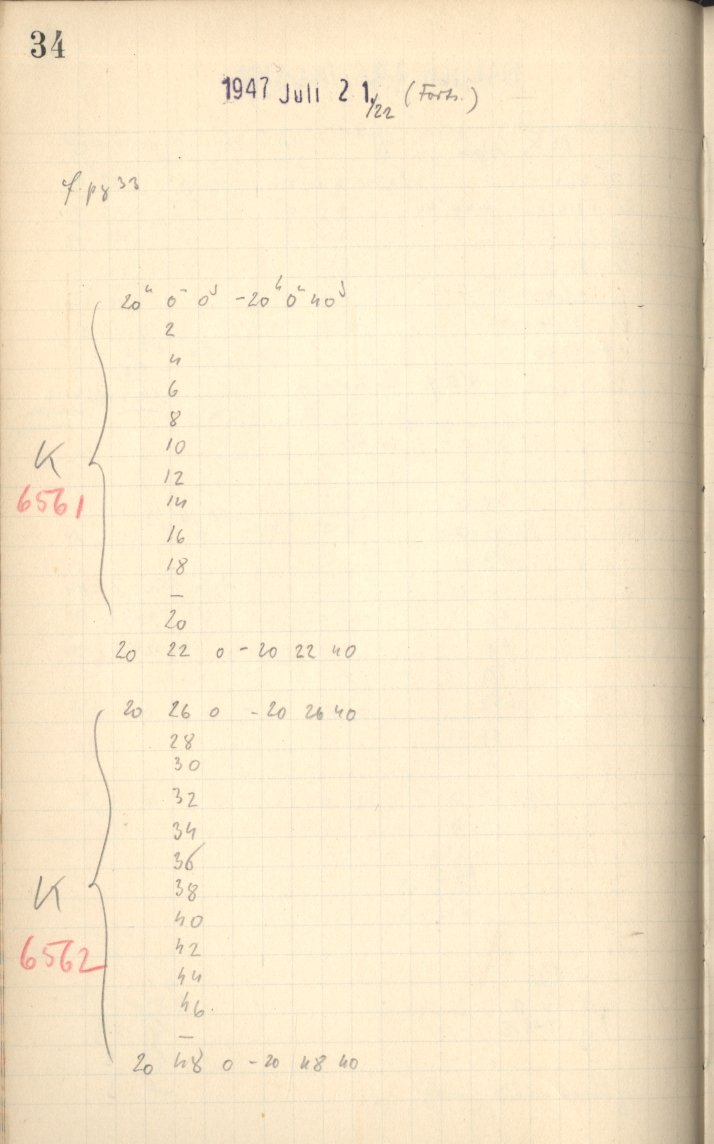 34
1947 Juli 21./22 (Forts.)
f. pg 33
20ʰ 0ᵐ 0ˢ - 20ʰ 0ᵐ 40ˢ
2
4
6
8
10
K
12
6561
14
16
18
—
20
20 22 0 - 20 22 40
20 26 0 - 20 26 40
28
30
32
34
36
38
K
40
42
6562
44
46.
—
20 48 0 - 20 48 40